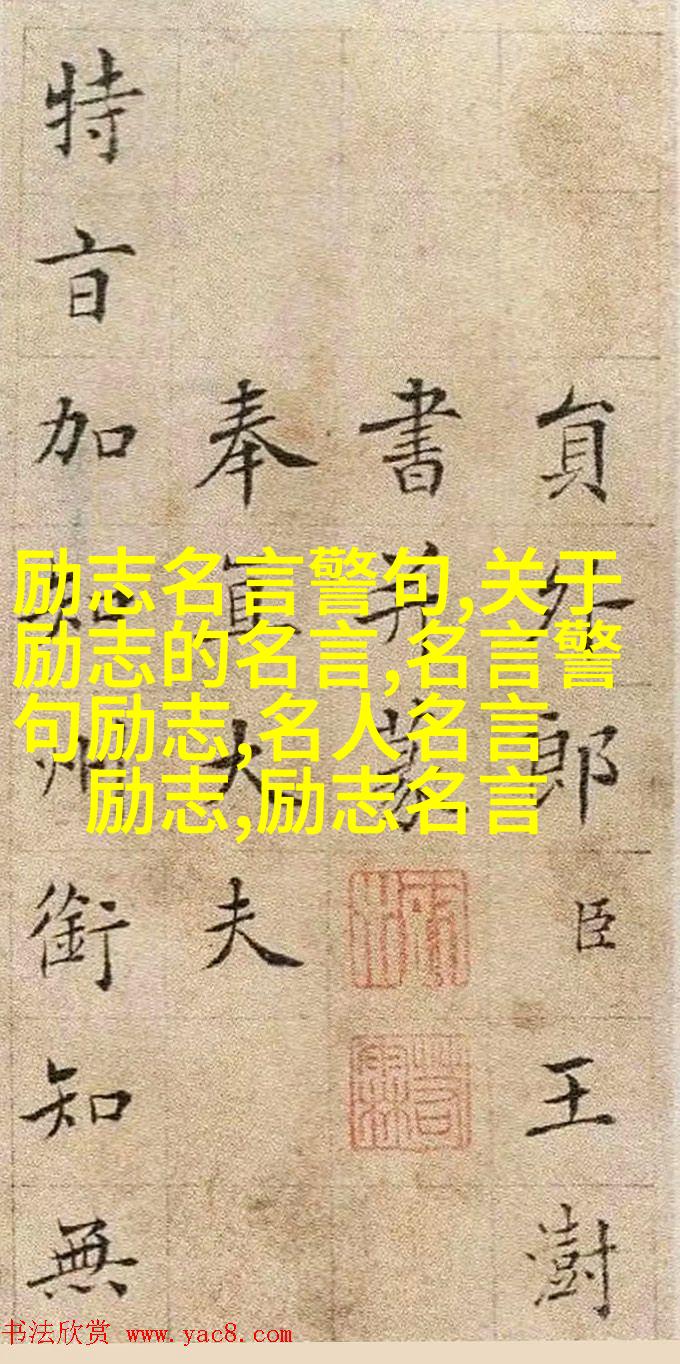 励志名言警句,关于
励志的名言,名言警
句励志,名人名言
励志,励志名言
貟外郎臣王澍
書并
奉直大夫
特旨加知州銜知無
书法欣赏 www.yac8.com